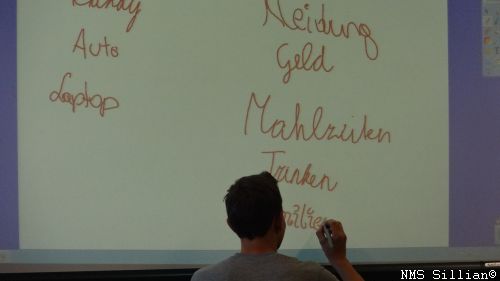 Handy
Auto
Laptop
Kleidung
Geld
Mahlzeiten
Trinken
NMS Sillian©